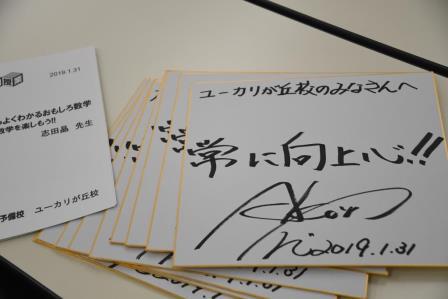 2019.1.31
よくわかるおもしろ数学
数学を楽しもう!!
志田晶 先生
予備校 ユーカリが丘校
ユーカリが丘校のみなさんへ
常に向上心!!
2019.1.31
1.31